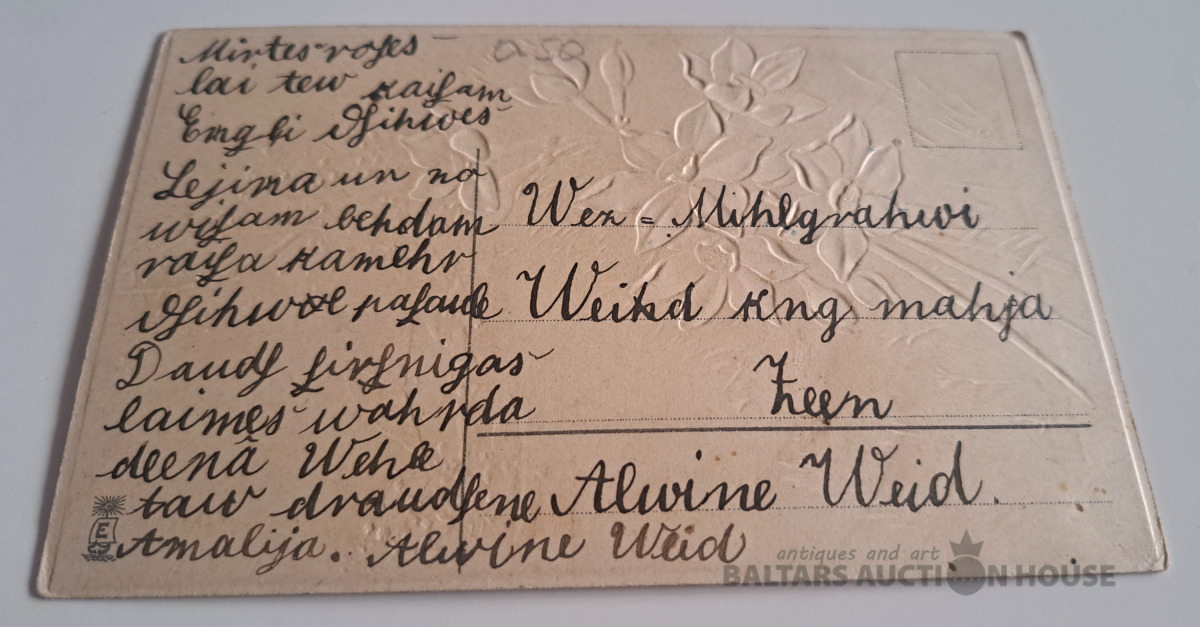 Mirtes roſes
lai tew kaiſam
Engli dſihwes
Lejina un no
wiſam behdam
raiſa kamehr
dſihwot paſaule
Daudſ ſirſnigas
laimes wahrda
deenā Wehle
taw draudſene
Amalija. Alwine Weid
a 50
Wez = Mihlgrahwi
Weikd kng mahja
Zeen
Alwine Weid.
E
antiques and art
BALTARS AUCTION HOUSE